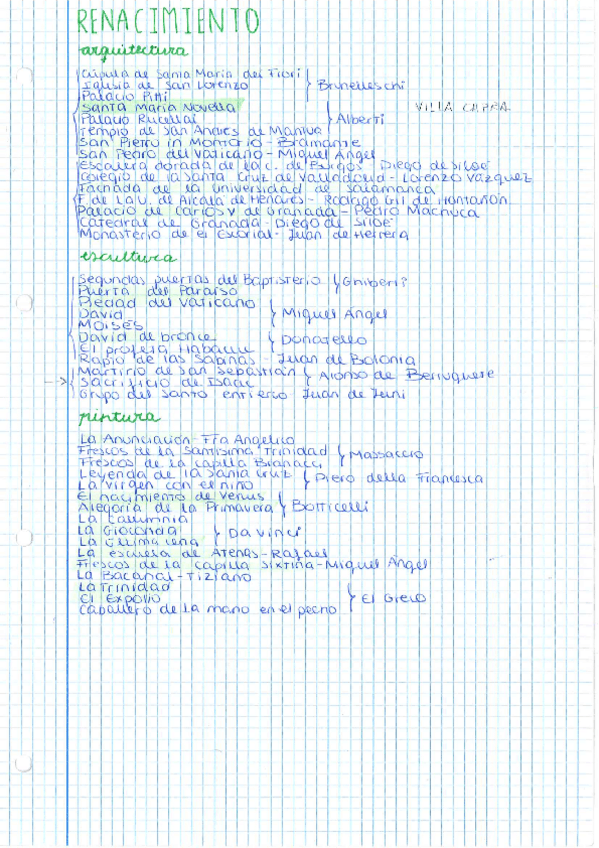 RENACIMIENTO
arquitectura
Cúpula de Santa María dei Fiori
Iglesia de San Lorenzo } Brunelleschi
Palacio Pitti
Santa Maria Novella VILLA CAPRA
Palacio Rucellai } Alberti
Templo de San Andrés de Mantua
San Pietro in Montorio - Bramante
San Pedro del Vaticano - Miguel Ángel
Escalera dorada de la c. de Burgos - Diego de Siloé
Colegio de la Santa Cruz de Valladolid - Lorenzo Vázquez
Fachada de la universidad de Salamanca
F. de la U. de Alcalá de Henares - Rodrigo Gil de Hontañón
Palacio de Carlos V de Granada - Pedro Machuca
Catedral de Granada - Diego de Siloé
Monasterio de el Escorial - Juan de Herrera
escultura
Segundas puertas del Baptisterio } Ghiberti
Puerta del Paraíso
Piedad del Vaticano
David } Miguel Ángel
Moisés
David de bronce } Donatello
El profeta Habacuc
Rapto de las Sabinas - Juan de Bolonia
Martirio de San Sebastián } Alonso de Berruguete
→ Sacrificio de Isaac
Grupo del Santo entierro Juan de Juni
pintura
La Anunciación - Fra Angelico
Frescos de la Santísima Trinidad } Massaccio
Frescos de la capilla Brancacci
Leyenda de la Santa Cruz } Piero della Francesca
La Virgen con el niño
El nacimiento de Venus } Botticelli
Alegoría de la Primavera
La Calumnia
La Gioconda } Da Vinci
La Última cena
La escuela de Atenas - Rafael
Frescos de la capilla Sixtina - Miguel Ángel
La Bacanal - Tiziano
La Trinidad
El Expolio } El Greco
Caballero de la mano en el pecho